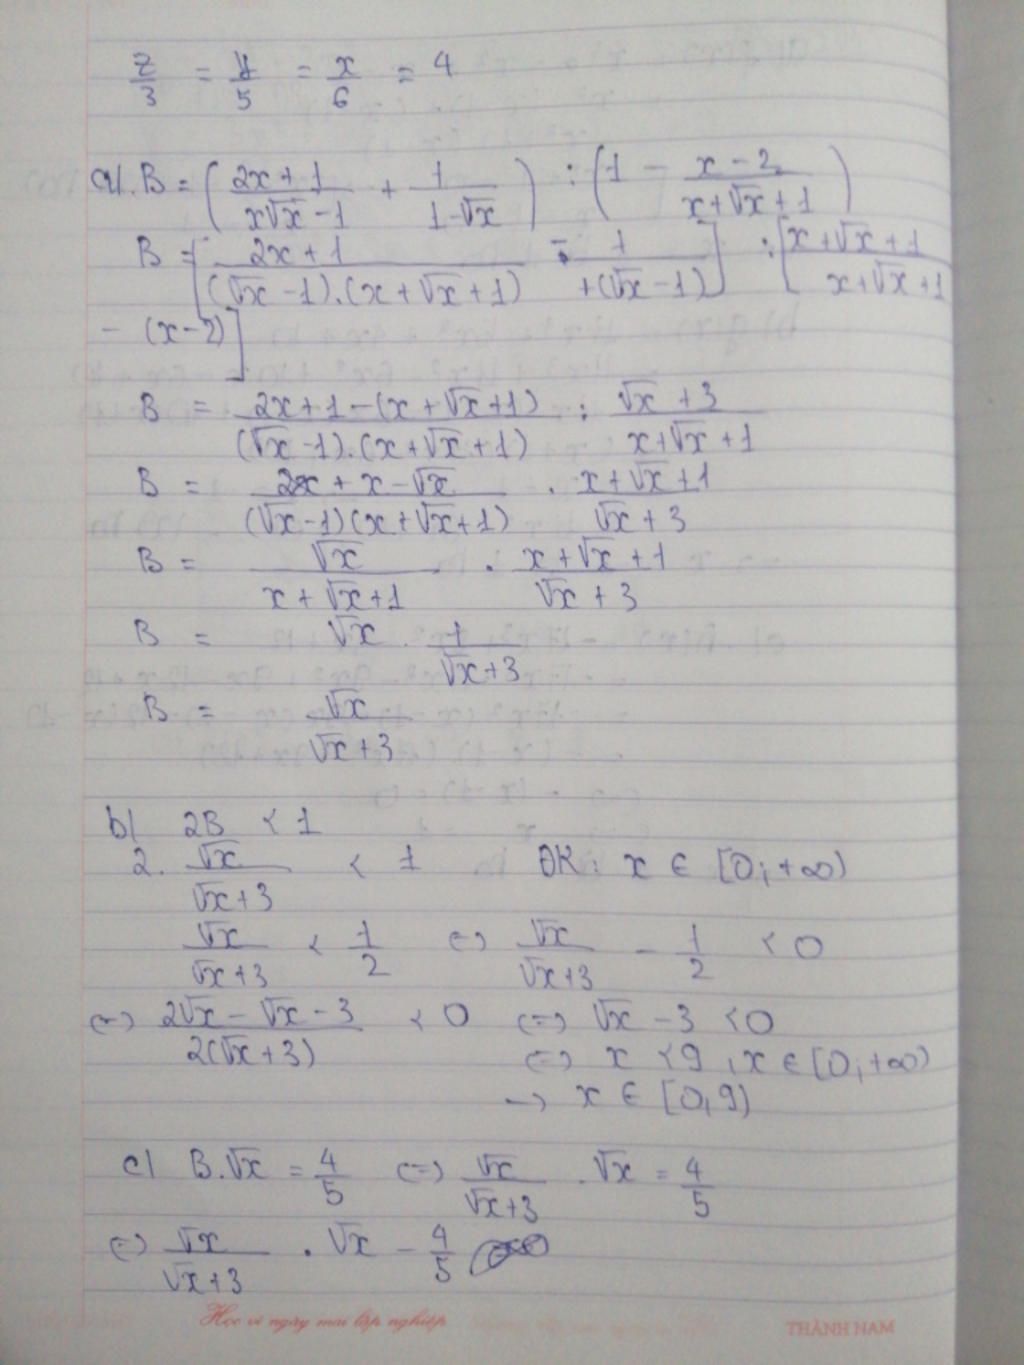 z/3 = y/5 = x/6 = 4
a/. B = ( (2x+1)/(x√x-1) + 1/(1-√x) ) : ( 1 - (x-2)/(x+√x+1) )
B = [ (2x+1)/((√x-1).(x+√x+1)) - 1/(+(√x-1)) ] : [ (x+√x+1)/(x+√x+1)
- (x-2) ]
B = (2x+1-(x+√x+1))/((√x-1).(x+√x+1)) : (√x+3)/(x+√x+1)
B = (2x+x-√x)/((√x-1)(x+√x+1)) . (x+√x+1)/(√x+3)
B = √x/(x+√x+1) . (x+√x+1)/(√x+3)
B = √x . 1/(√x+3)
B = √x/(√x+3)
b/ 2B < 1
2. √x/(√x+3) < 1 ĐK: x ∈ [0;+∞)
√x/(√x+3) < 1/2 <=> √x/(√x+3) - 1/2 < 0
<=> (2√x-√x-3)/(2(√x+3)) < 0 <=> √x-3 < 0
<=> x < 9, x ∈ [0;+∞)
-> x ∈ [0,9)
c/ B.√x = 4/5 <=> √x/(√x+3) . √x = 4/5
<=> √x/(√x+3) . √x - 4/5
Học vì ngày mai lập nghiệp THÀNH NAM